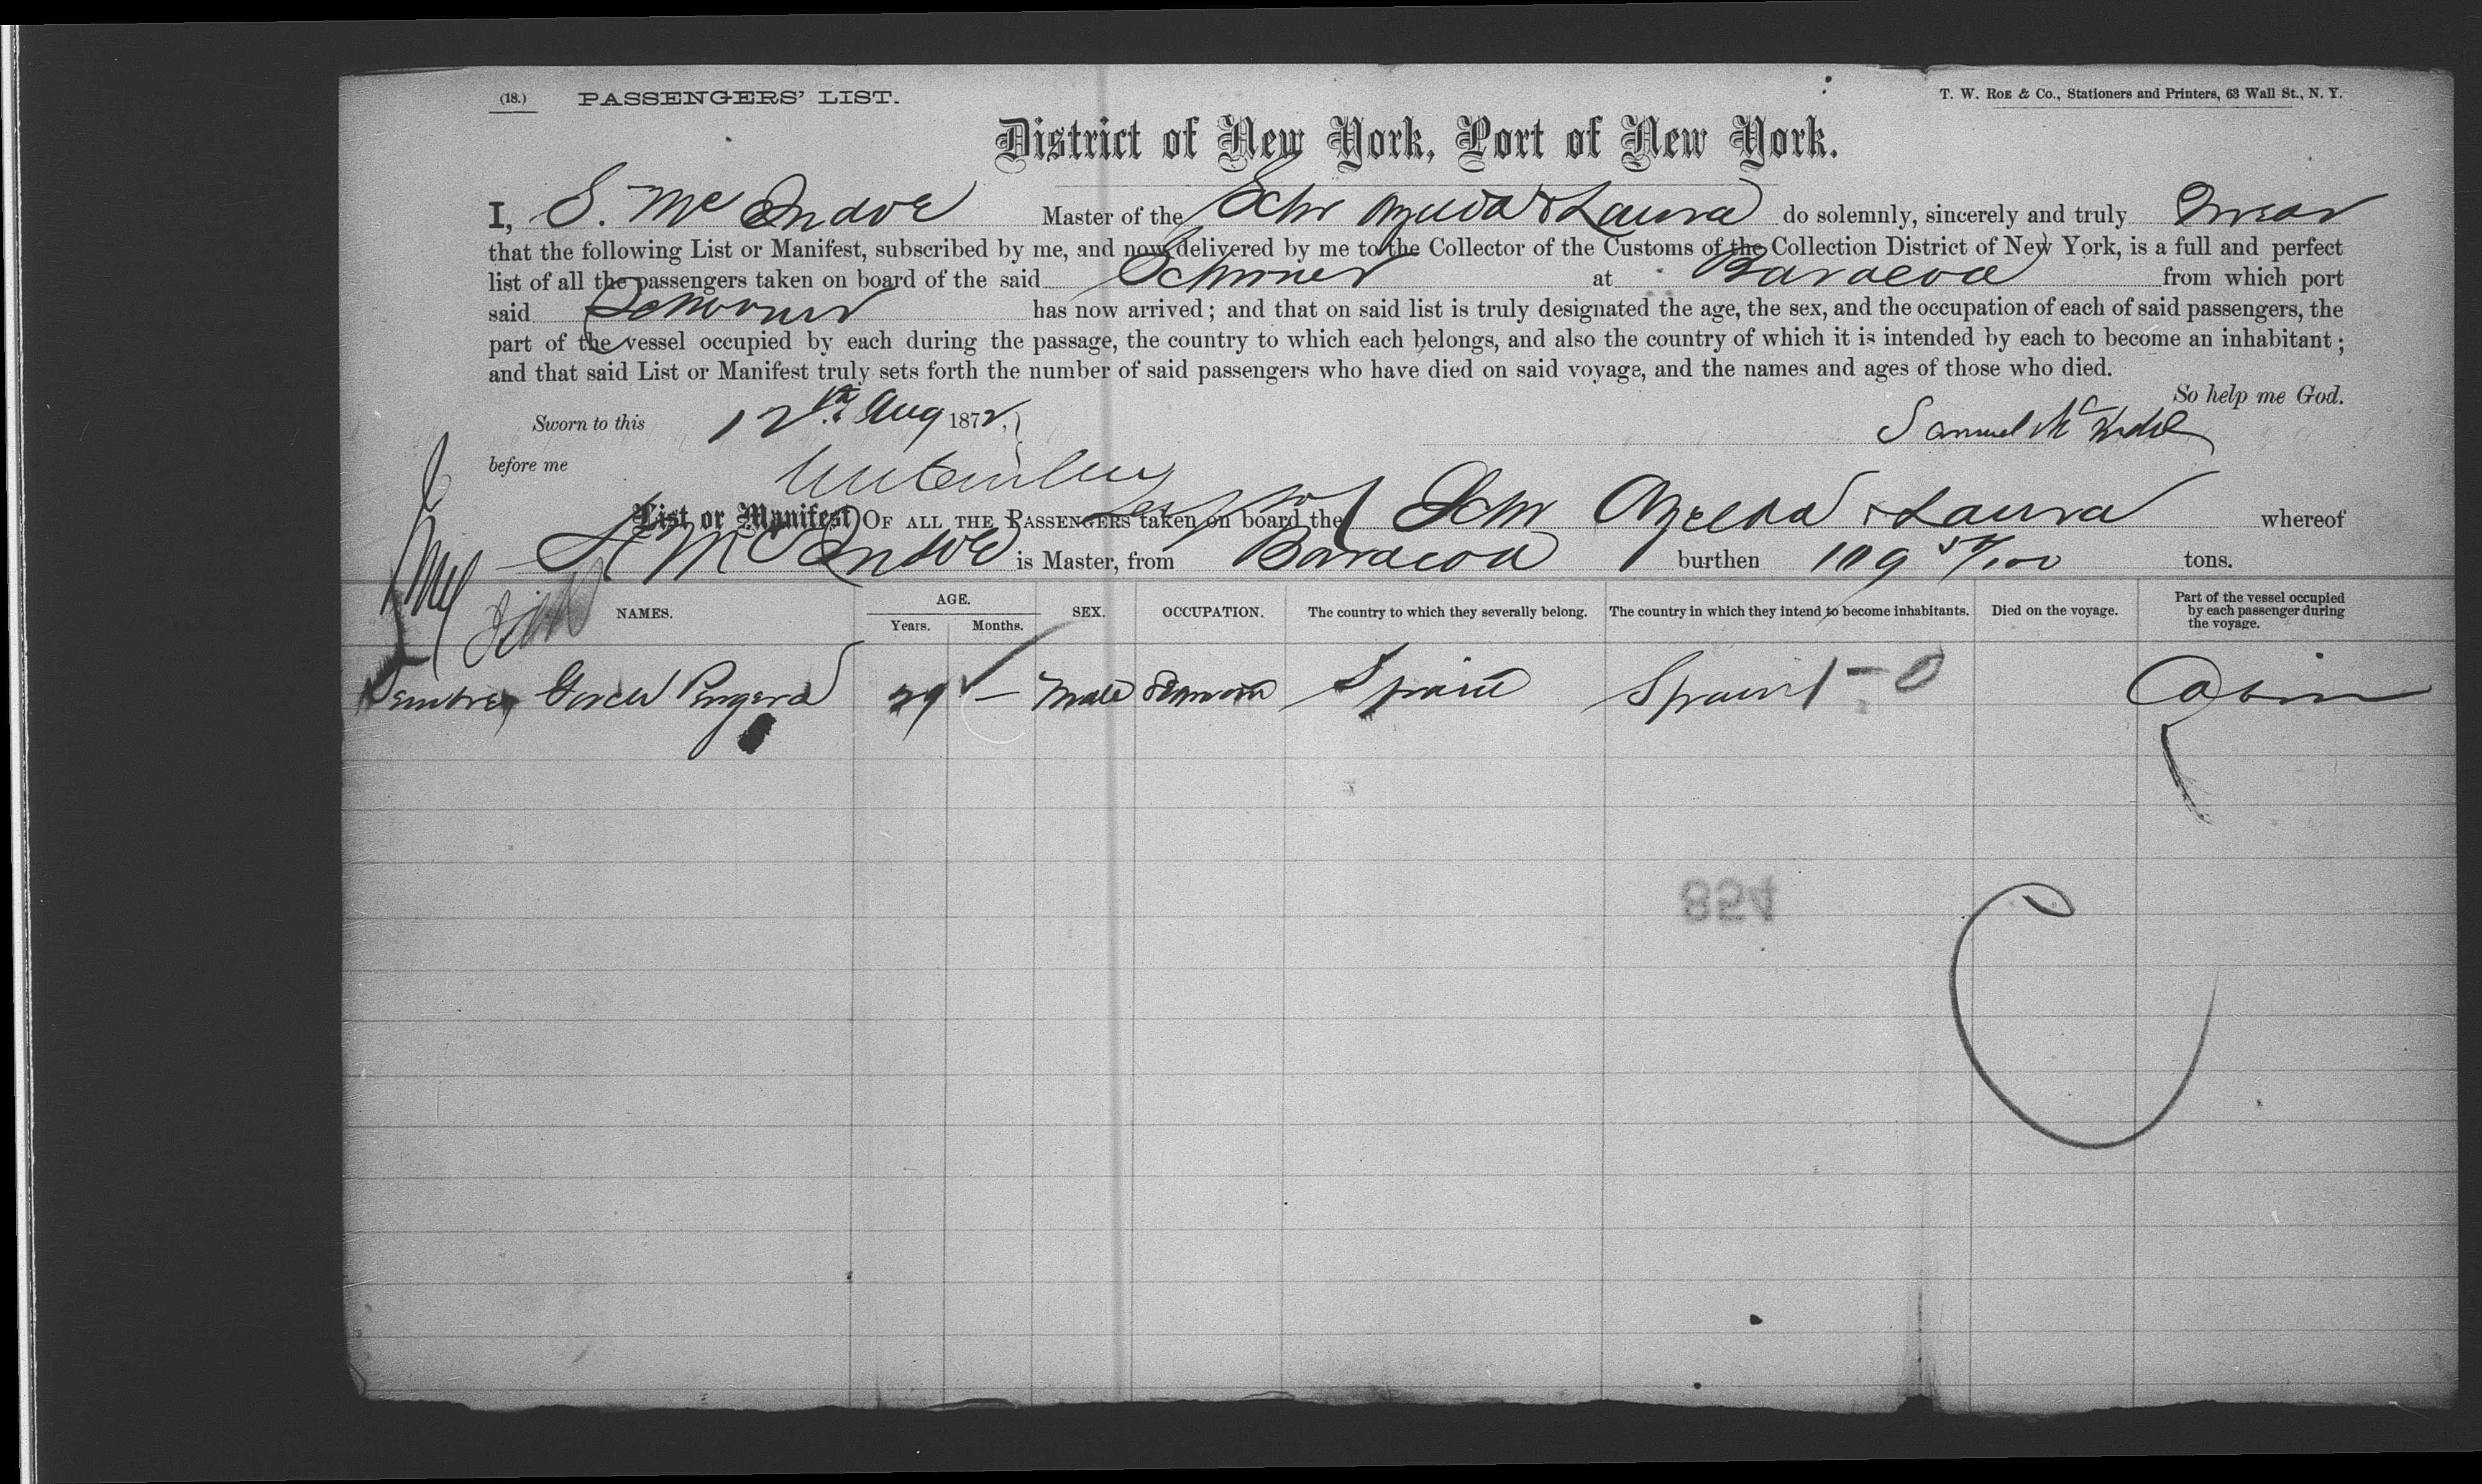 (18.) PASSENGERS' LIST. T. W. Roe & Co., Stationers and Printers, 63 Wall St., N. Y.
District of New York, Port of New York.
I, S. Mc Indoe Master of the Schr & Laura do solemnly, sincerely and truly Swear
that the following List or Manifest, subscribed by me, and now delivered by me to the Collector of the Customs of the Collection District of New York, is a full and perfect
list of all the passengers taken on board of the said Schooner at Baracoa from which port
said Schooner has now arrived; and that on said list is truly designated the age, the sex, and the occupation of each of said passengers, the
part of the vessel occupied by each during the passage, the country to which each belongs, and also the country of which it is intended by each to become an inhabitant;
and that said List or Manifest truly sets forth the number of said passengers who have died on said voyage, and the names and ages of those who died.
So help me God.
Sworn to this 12th Aug 1872, Samuel Mc
before me
List or Manifest OF ALL THE PASSENGERS taken on board the Schr & Laura whereof
S Mc Indoe is Master, from Baracoa burthen 109 tons.
NAMES. AGE. Years. Months. SEX. OCCUPATION. The country to which they severally belong. The country in which they intend to become inhabitants. Died on the voyage. Part of the vessel occupied by each passenger during the voyage.
29 — Male Spain Spain 1-0 Cabin
854